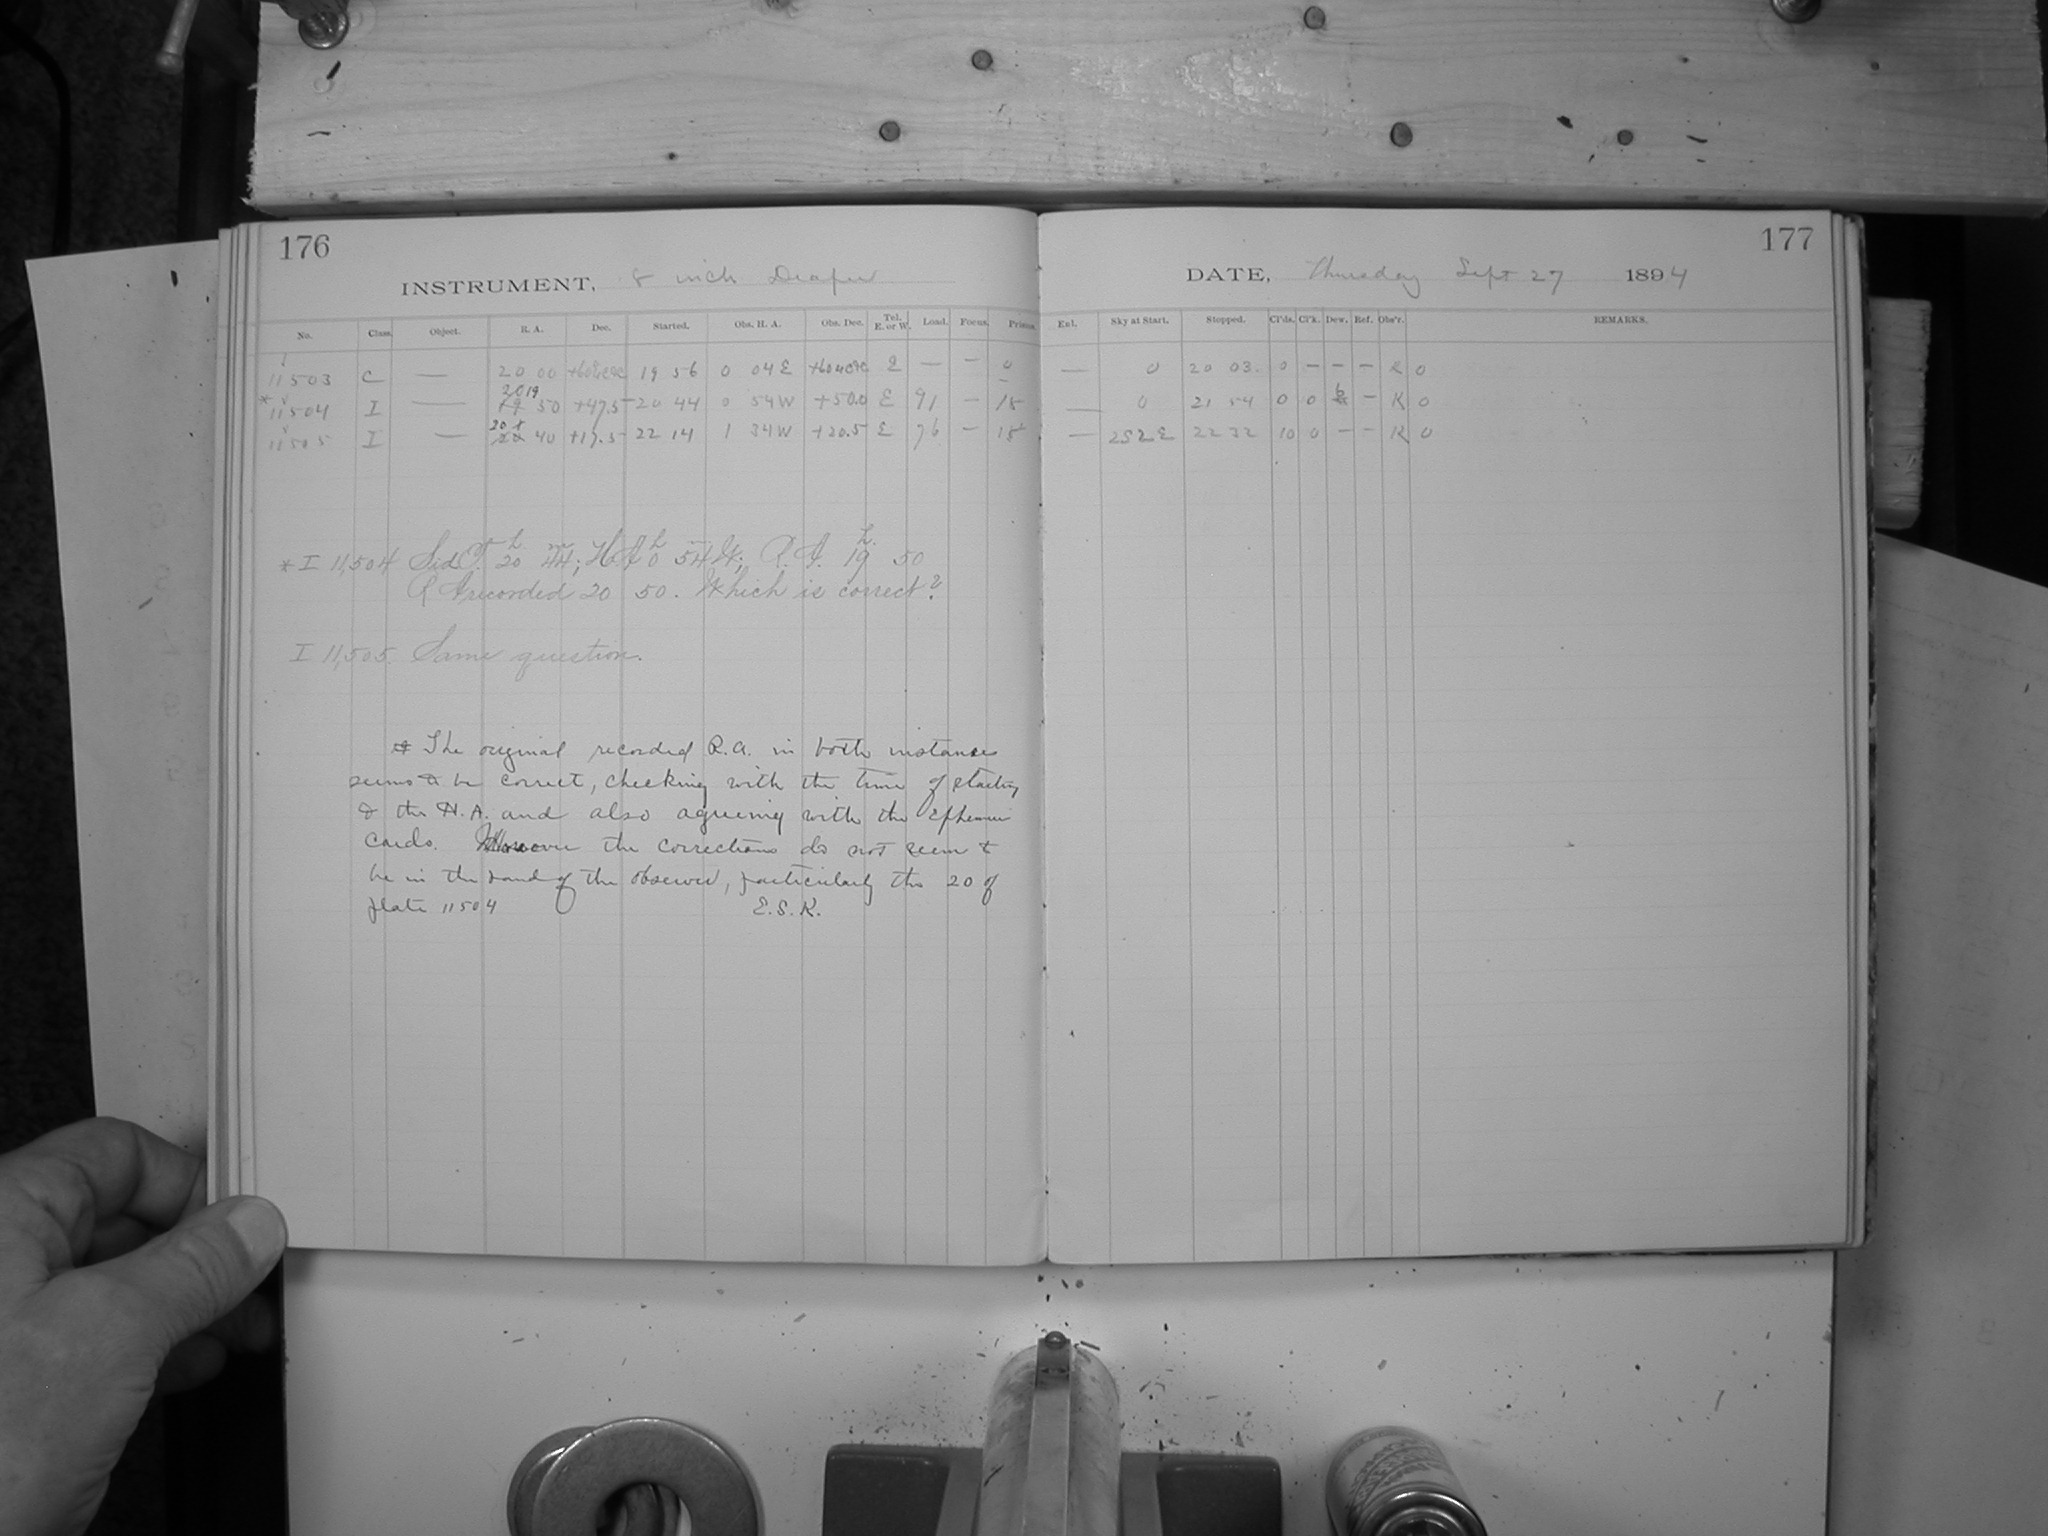 176
INSTRUMENT, 8 inch Draper
No. Class. Object. R. A. Dec. Started. Obs. H. A. Obs. Dec. Tel. E. or W. Load. Focus. Prisms.
11503 C — 20 00 19 56 0 04 E E — — 0
20 19
* 11504 I — 19 50 +47.5 20 44 0 54 W +50.0 E 91 — 15
20
11505 I — 40 +17.5 22 14 1 34 W +20.5 E 76 — 15
* I 11,504 Sid. T. 20h 44m; H.A. 0h 54m W; R.A. 19h 50
R A recorded 20 50. Which is correct?
I 11,505 Same question.
* The original recorded R.A. in both instances
seems to be correct, checking with the time of starting
& the H.A. and also agreeing with the Ephemeris
cards. Moreover the corrections do not seem to
be in the hand of the observer, particularly the 20 of
plate 11504
E.S.K.
177
DATE, Thursday Sept 27 1894
Enl. Sky at Start. Stopped. Cl'ds. Cl'k. Dew. Ref. Obs'r. REMARKS.
— 0 20 03 0 — — — K 0
— 0 21 54 0 0 — K 0
— 252 E 22 32 10 0 — — K 0